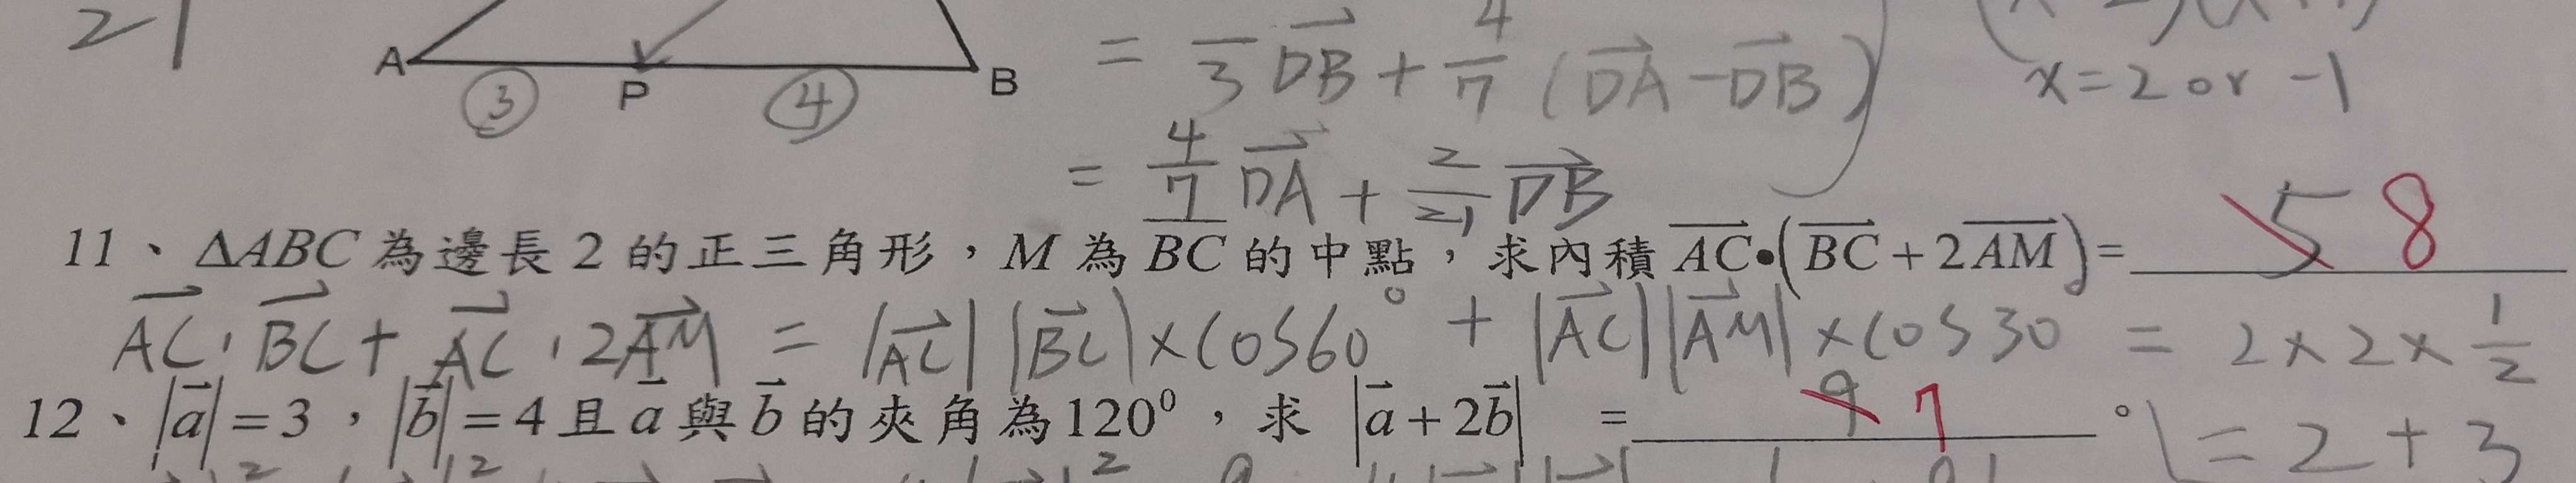 21
A ③ P ④ B
= ‾3 DB + 4/7 (DA - DB)
x = 2 or -1
= 4/7 DA + 2/21 DB
11、ΔABC 為邊長 2 的正三角形，M 為 BC 的中點，求內積 AC•(BC + 2AM) = 5 8
AC · BC + AC · 2AM = |AC| |BC| × cos60° + |AC| |AM| × cos30 = 2 × 2 × 1/2
12、|a| = 3，|b| = 4 且 a 與 b 的夾角為 120⁰，求 |a + 2b| = 9 7 。
= 2 + 3